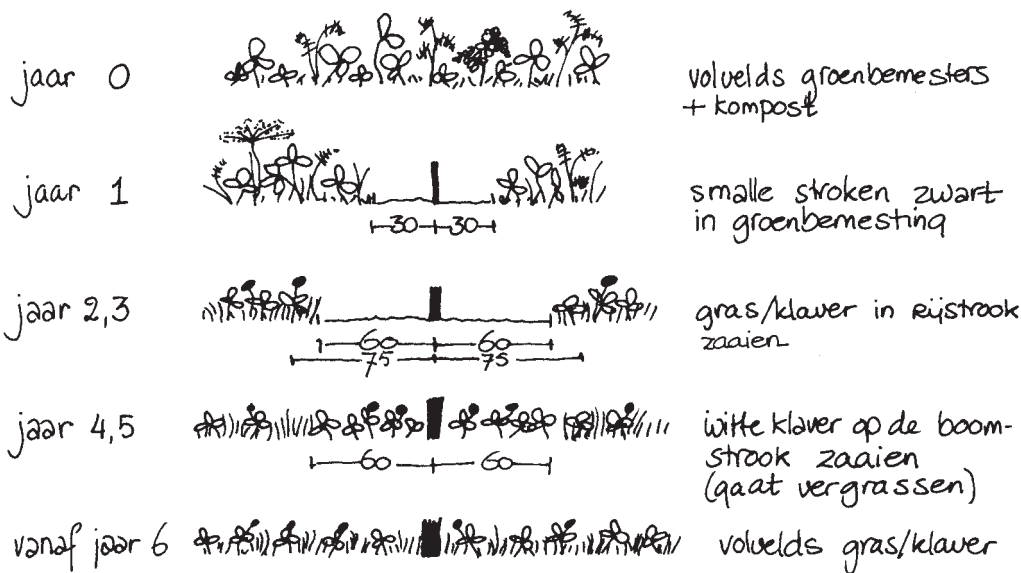 jaar 0
volvelds groenbemesters
+ kompost
jaar 1
smalle stroken zwart
in groenbemesting
30 30
jaar 2,3
gras/klaver in rijstrook
zaaien
60 60
75 75
jaar 4,5
witte klaver op de boom-
strook zaaien
(gaat vergrassen)
60 60
vanaf jaar 6
volvelds gras/klaver